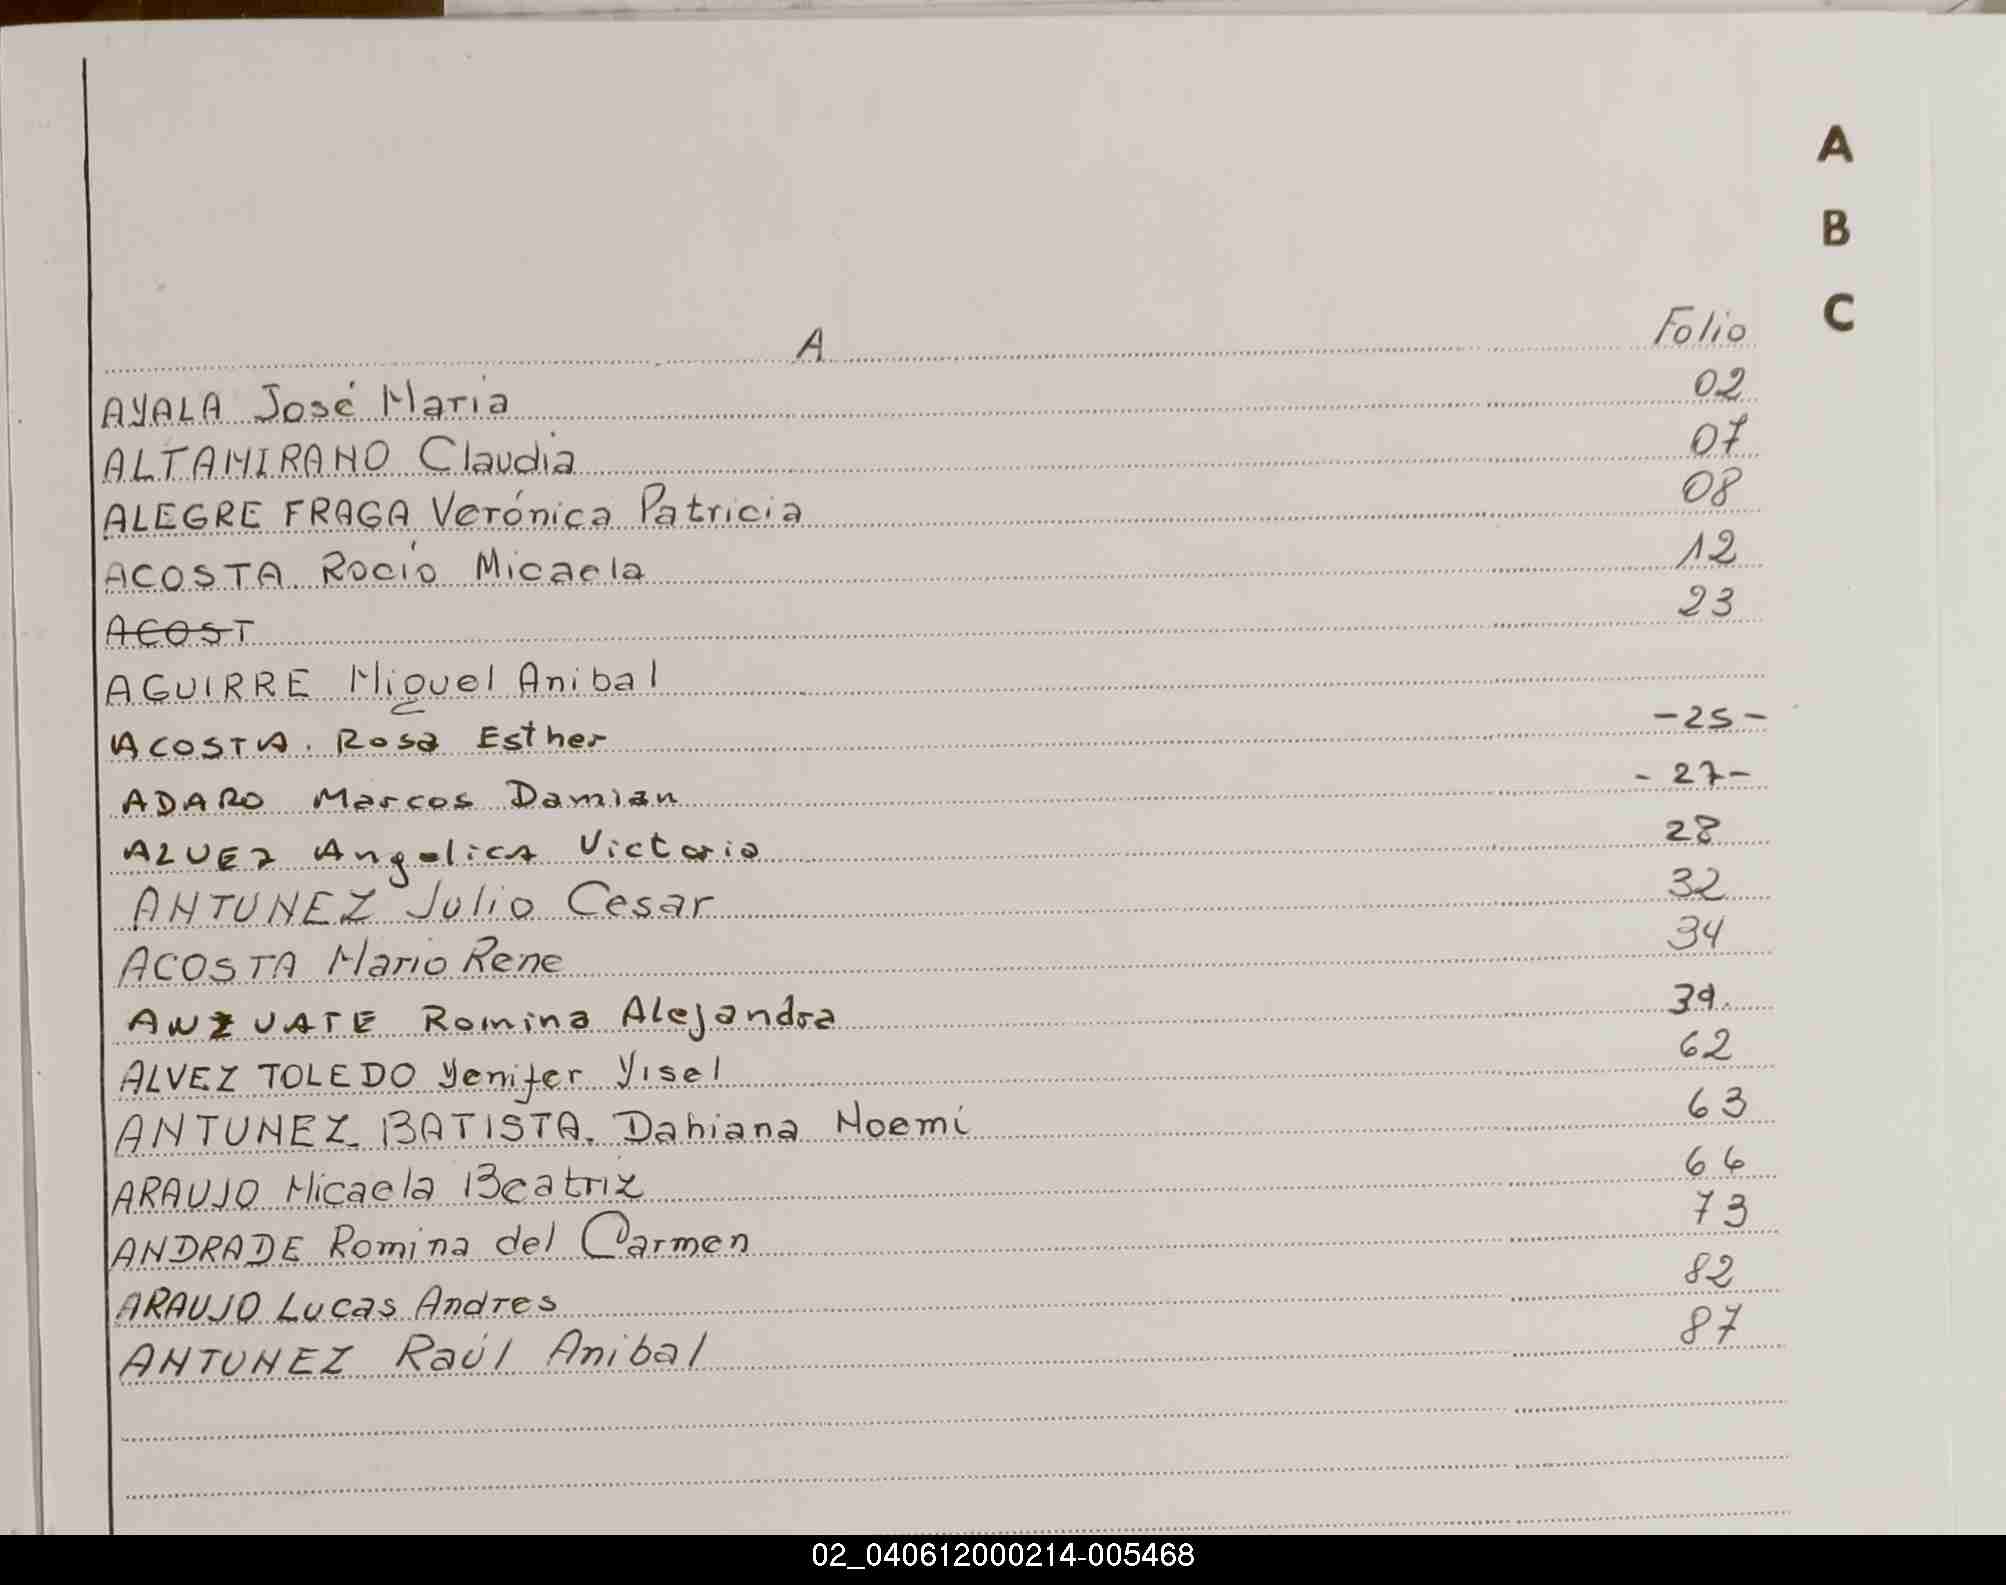 A
B
C
A Folio
AYALA José María 02
ALTAMIRANO Claudia 07
ALEGRE FRAGA Verónica Patricia 08
ACOSTA Rocío Micaela 12
ACOST 23
AGUIRRE Miguel Anibal
ACOSTA. Rosa Esther -25-
ADARO Marcos Damian -27-
ALUEZ Angelica Victoria 28
ANTUNEZ Julio Cesar 32
ACOSTA Mario Rene 34
ANZUATE Romina Alejandra 39.
ALVEZ TOLEDO Yenifer Yisel 62
ANTUNEZ BATISTA. Dahiana Noemí 63
ARAUJO Micaela Beatriz 66
ANDRADE Romina del Carmen 73
ARAUJO Lucas Andres 82
ANTUNEZ Raúl Anibal 87
02_040612000214-005468